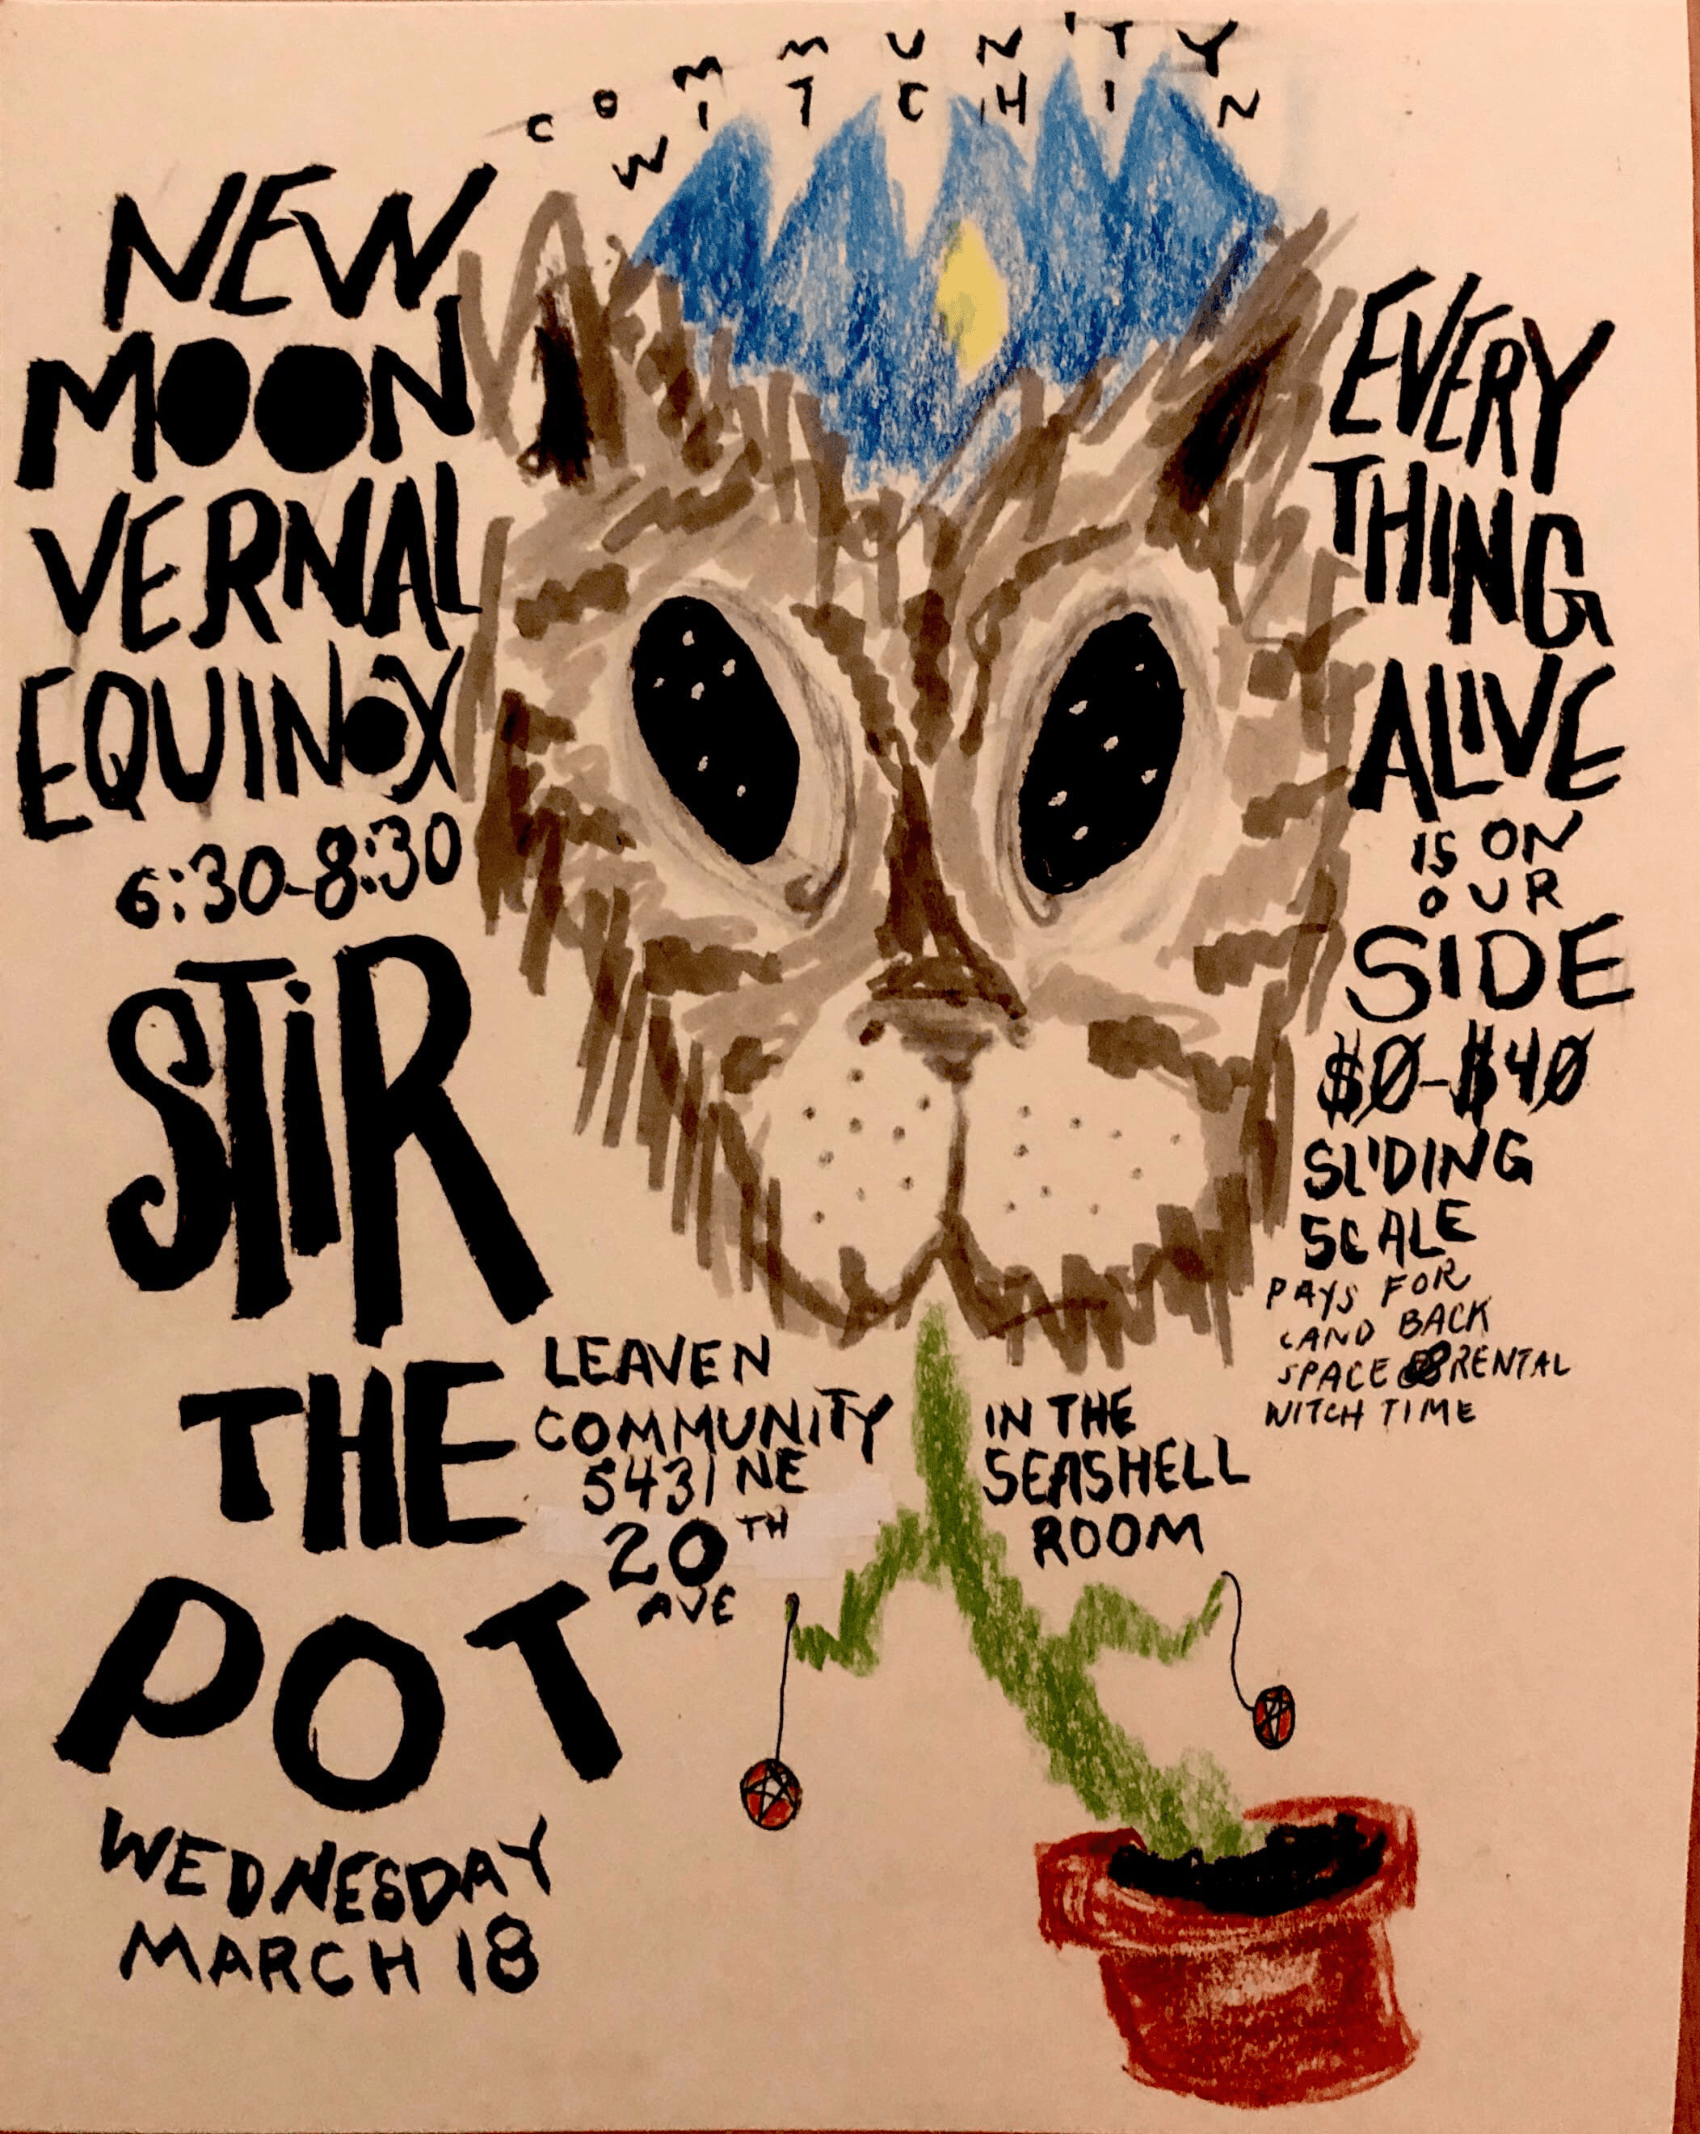 COMMUNITY
WITCHIN
NEW
MOON
VERNAL
EQUINOX
6:30-8:30
STiR
THE
POT
WEDNESDAY
MARCH 18
LEAVEN
COMMUNITY
5431 NE
20TH
AVE
IN THE
SEASHELL
ROOM
EVERY
THING
ALIVE
IS ON
OUR
SIDE
$0-$40
SLIDING
SCALE
PAYS FOR
LAND BACK
SPACE RENTAL
WITCH TIME